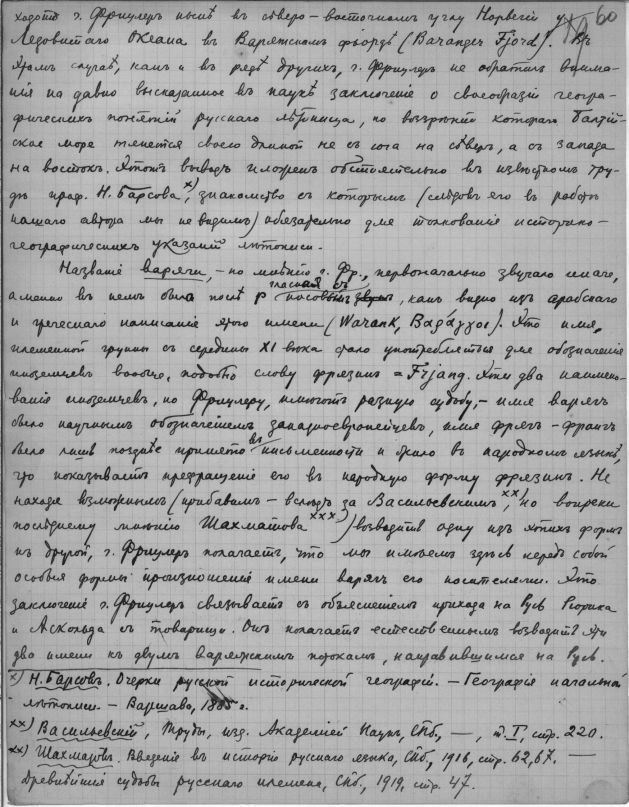 ходятъ г. Фрицлеръ нынѣ въ сѣверо-восточномъ углу Норвегіи у 60
Ледовитаго Океана въ Варяжскомъ фіордѣ (Baranger Fjord). Въ
этомъ случаѣ, какъ и въ рядѣ другихъ, г. Фрицлеръ не обратилъ внима-
нія на давно высказанное въ наукѣ заключеніе о своеобразіи геогра-
фическихъ понятій русскаго лѣтописца, по воззрѣнію котораго Балтій-
ское море тянется своею длиной не съ юга на сѣверъ, а съ запада
на востокъ. Этотъ выводъ изложенъ обстоятельно въ извѣстномъ тру-
дѣ проф. Н. Барсова x), знакомство съ которымъ (слѣдовъ его въ работѣ
нашего автора мы не видимъ) обязательно для толкованія историко-
географическихъ указаній лѣтописи.
Названіе варяги, - по мнѣнію г. Фр., первоначально звучало иначе,
а именно въ немъ была послѣ р гласная съ носовымъ звук, какъ видно изъ арабскаго
и греческаго написанія этого имени (Warank, Βαράγγοι). Это имя,
племенной группы съ середины XI вѣка стало употребляться для обозначенія
иноземцевъ вообще, подобно слову фрязинъ = Frjang. Эти два наимено-
ванія иноземцевъ, по Фрицлеру, имѣютъ разную судьбу, - имя варягъ
было научнымъ обозначеніемъ западноевропейцевъ, имя фрягъ - франгъ
было лишь позднѣе принято въ письменности и жило въ народномъ языкѣ,
что показываетъ превращеніе его въ народную форму фрязинъ. Не
находя возможнымъ (прибавимъ - вслѣдъ за Васильевскимъ xx), но вопреки
послѣднему мнѣнію Шахматова xxx) возводить одну изъ этихъ формъ
къ другой, г. Фрицлеръ полагаетъ, что мы имѣемъ здѣсь передъ собой
особыя формы произношенія имени варягъ его носителями. Это
заключеніе г. Фрицлеръ связываетъ съ объясненіемъ прихода на Русь Рюрика
и Аскольда съ товарищи. Онъ полагаетъ естественнымъ возводить эти
два имени къ двумъ варяжскимъ потокамъ, направившимся на Русь.
x) Н. Барсовъ. Очерки русской исторической географіи. - Географія начальной
лѣтописи. - Варшава, 1885 г.
xx) Васильевскій, Труды, изд. Академіей Наукъ, СПб., —, т. I, стр. 220.
xx) Шахматовъ. Введеніе въ исторію русскаго языка, СПб., 1916, стр. 62, 67. —
Древнѣйшія судьбы русскаго племени, СПб., 1919, стр. 47.